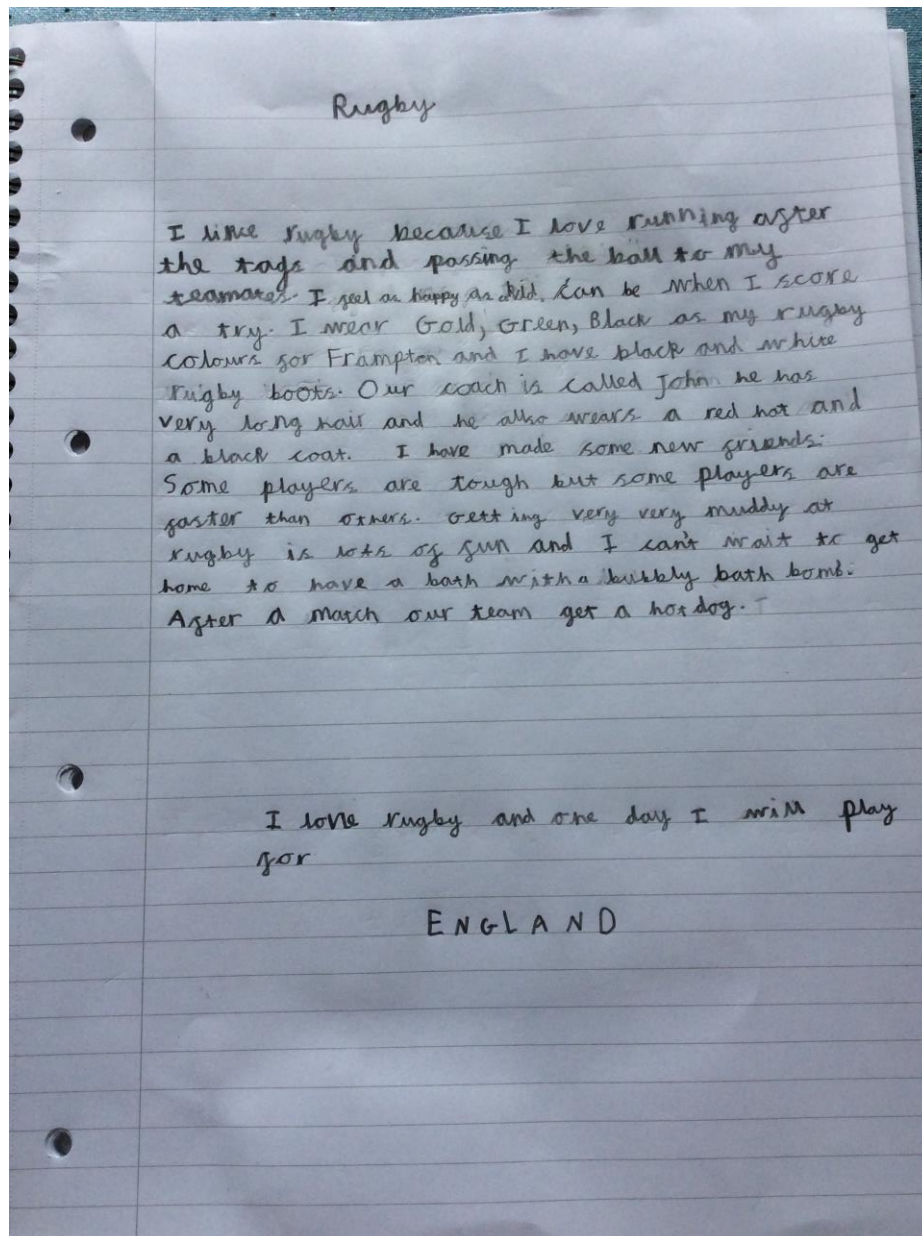 Rugby
I like rugby because I love running after
the tags and passing the ball to my
teamates. I feel as happy as kid can be when I score
a try. I wear Gold, Green, Black as my rugby
colours for Frampton and I have black and white
rugby boots. Our coach is called John he has
very long hair and he also wears a red hat and
a black coat. I have made some new friends.
Some players are tough but some players are
faster than others. Getting very very muddy at
rugby is lots of fun and I can't wait to get
home to have a bath with a bubbly bath bomb.
After a match our team get a hotdog.
I love rugby and one day I will play
for
ENGLAND